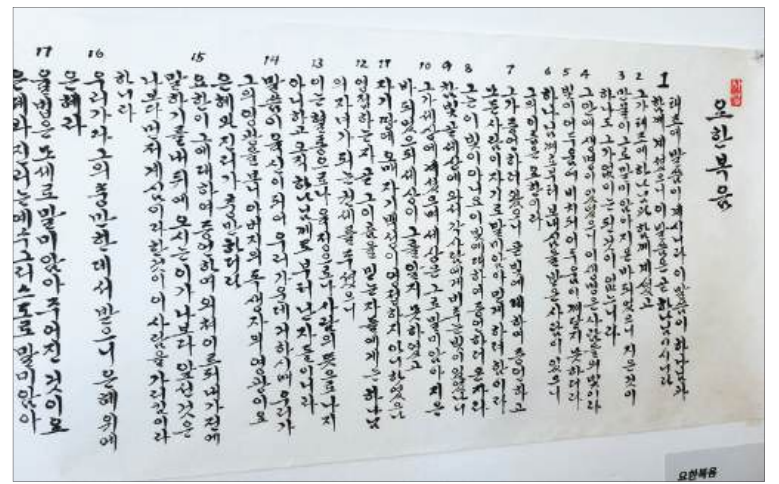 요한복음
1 태초에 말씀이 계시니라 이 말씀이 하나님과
함께 계셨으니 이 말씀은 곧 하나님이시니라
2 그가 태초에 하나님과 함께 계셨고
3 만물이 그로 말미암아 지은 바 되었으니 지은 것이
하나도 그가 없이는 된 것이 없느니라
4 그 안에 생명이 있었으니 이 생명은 사람들의 빛이라
5 빛이 어두움에 비치되 어두움이 깨닫지 못하더라
6 하나님께로부터 보내심을 받은 사람이 있으니
그의 이름은 요한이라
7 그가 증언하러 왔으니 곧 빛에 대하여 증언하고
모든 사람이 자기로 말미암아 믿게 하려 함이라
8 그는 이 빛이 아니요 이 빛에 대하여 증언하러 온 자라
9 참 빛 곧 세상에 와서 각 사람에게 비추는 빛이 있었나니
10 그가 세상에 계셨으며 세상은 그로 말미암아 지은
바 되었으되 세상이 그를 알지 못하였고
11 자기 땅에 오매 자기 백성이 영접하지 아니하였으나
12 영접하는 자 곧 그의 이름을 믿는 자들에게는 하나님
의 자녀가 되는 권세를 주셨으니
13 이는 혈통으로나 육정으로나 사람의 뜻으로 나지
아니하고 오직 하나님께로부터 난 자들이니라
14 말씀이 육신이 되어 우리 가운데 거하시매 우리가
그의 영광을 보니 아버지의 독생자의 영광이요
은혜와 진리가 충만하더라
15 요한이 그에 대하여 증언하여 외쳐 이르되 내가 전에
말하기를 내 뒤에 오시는 이가 나보다 앞선 것은
나보다 먼저 계심이라 한 것이 이 사람을 가리킨 것이라
하니라
16 우리가 다 그의 충만한 데서 받으니 은혜 위에
은혜라
17 율법은 모세로 말미암아 주어진 것이요
은혜와 진리는 예수 그리스도로 말미암아
요한복음